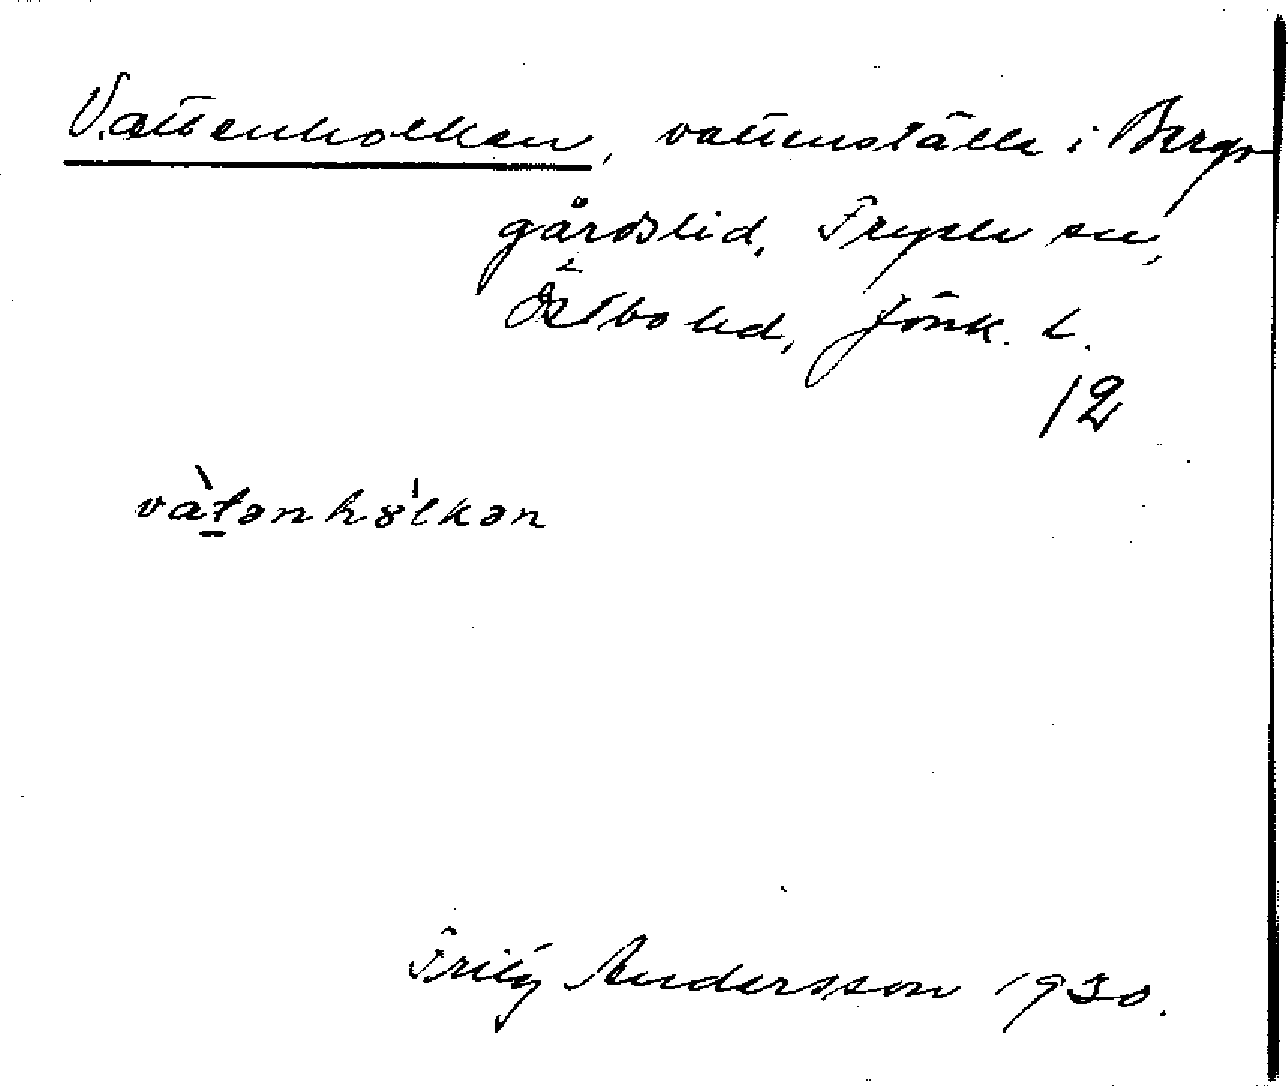 Vattenholken, vattenställe i Bergs-
gårdslid, Fryele sn,
Östbo hd, Jönk. l.
12
vàt̲ənhɷ'lkən
Fritz Andersson 1930.